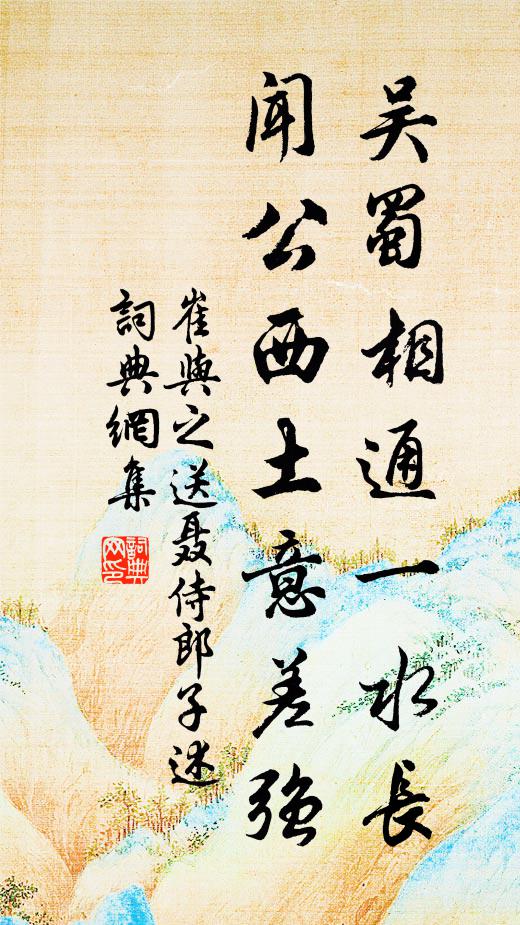 吴蜀相通一水長
闻公西土意差强
崔與之送聂侍郎子述
詞典網集
詞典网印